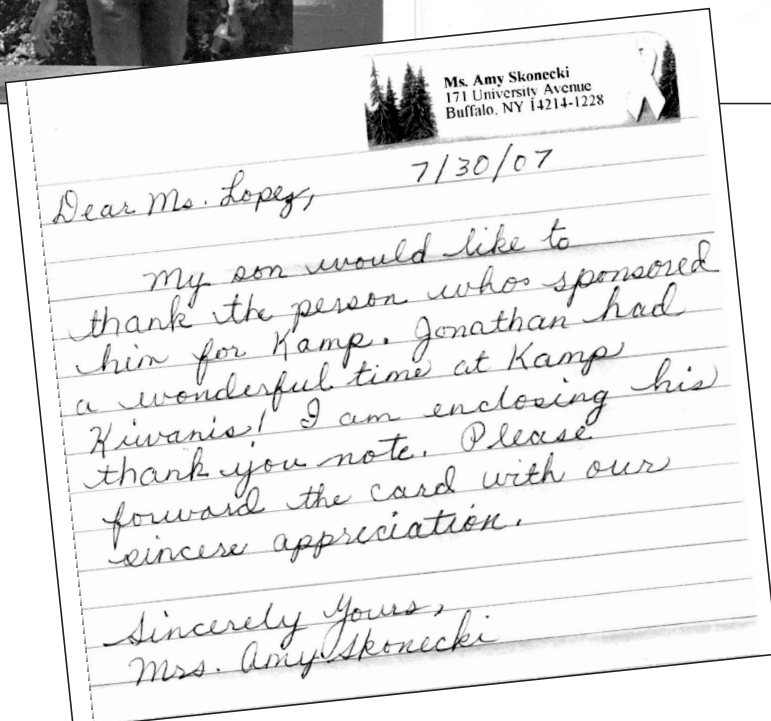 Ms. Amy Skonecki
171 University Avenue
Buffalo, NY 14214-1228
7/30/07
Dear Ms. Lopez,
My son would like to
thank the person who sponsored
him for Kamp. Jonathan had
a wonderful time at Kamp
Kiwanis! I am enclosing his
thank you note. Please
forward the card with our
sincere appreciation.
Sincerely Yours,
Mrs. Amy Skonecki